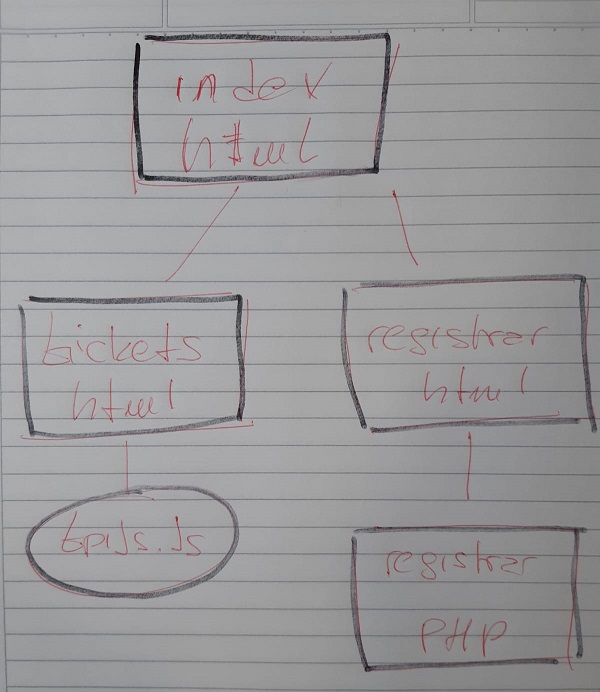 index
html
tickets
html
registrar
html
tpiJs.Js
registrar
PHP